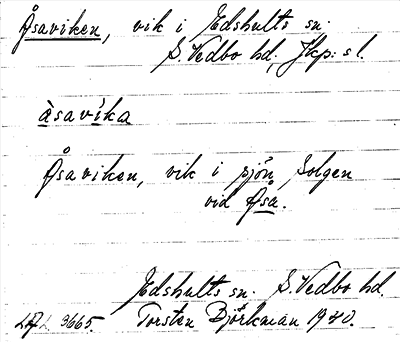 Åsaviken, vik i Edshults sn.
S. Vedbo hd, Jkp: s l.
àsavíka
Åsaviken, vik i sjön Solgen
vid Åsa.
Edshults sn. S. Vedbo hd.
3665. Torsten Björkman 1940.